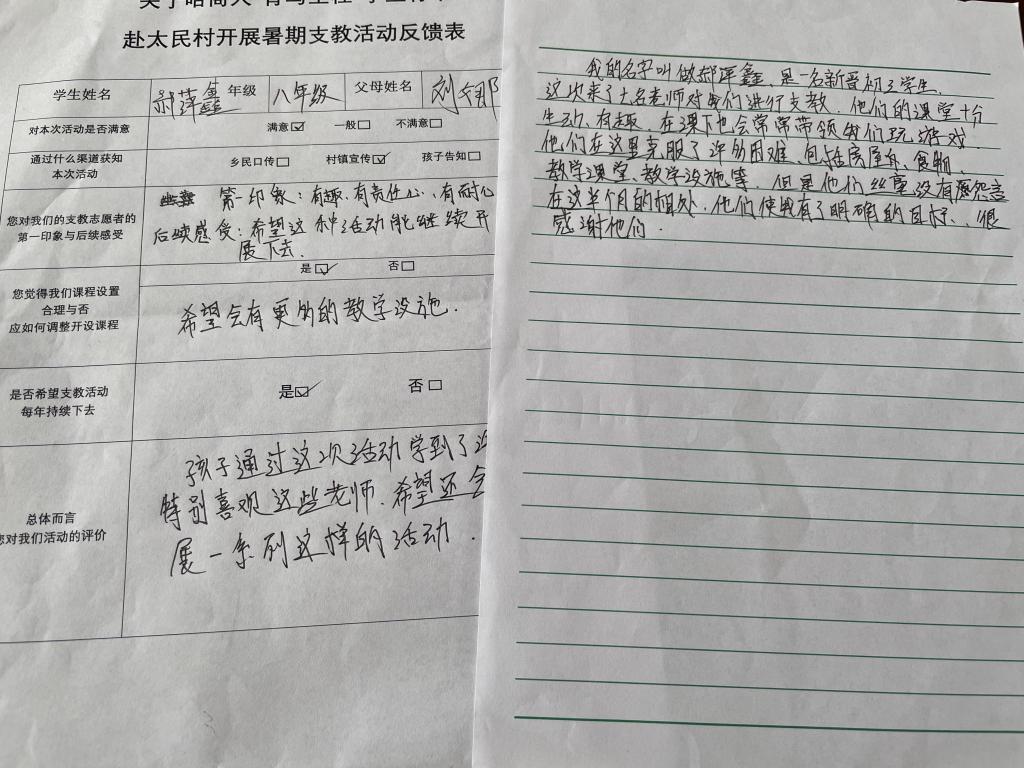 赴太民村开展暑期支教活动反馈表
学生姓名 郝萍鑫 年级 八年级 父母姓名
对本次活动是否满意 满意☑ 一般□ 不满意□
通过什么渠道获知 乡民口传□ 村镇宣传☑ 孩子告知□
本次活动
您对我们的支教志愿者的 第一印象：有趣、有责任心、有耐心
第一印象与后续感受 后续感受：希望这种活动能继续开
展下去.
是☑ 否□
您觉得我们课程设置
合理与否
应如何调整开设课程
希望会有更多的教学设施.
是否希望支教活动 是☑ 否□
每年持续下去
孩子通过这次活动学到了
特别喜欢这些老师.希望还会
展一系列这样的活动.
总体而言
您对我们活动的评价
我的名字叫做郝萍鑫,是一名新晋初三学生.
这次来了七名老师对我们进行支教.他们的课堂十分
生动、有趣.在课下也会常常带领我们玩游戏.
他们在这里克服了许多困难、包括房屋、食物、
教学课堂、教学设施等.但是他们丝毫没有怨言
在这半个月的相处.他们使我有了明确的目标、很
感谢他们.